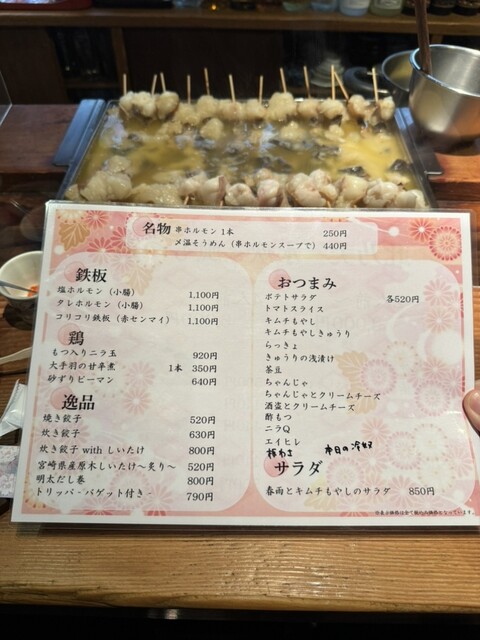 名物 串ホルモン 1本 250円
〆温そうめん（串ホルモンスープで） 440円
鉄板
塩ホルモン（小腸） 1,100円
タレホルモン（小腸） 1,100円
コリコリ鉄板（赤センマイ） 1,100円
鶏
もつ入りニラ玉 920円
大手羽の甘辛煮 1本 350円
砂ずりピーマン 640円
逸品
焼き餃子 520円
炊き餃子 630円
炊き餃子 with しいたけ 800円
宮崎県産原木しいたけ～炙り～ 520円
明太だし巻 800円
トリッパ - バゲット付き - 790円
おつまみ
ポテトサラダ 各520円
トマトスライス
キムチもやし
キムチもやしきゅうり
らっきょ
きゅうりの浅漬け
茶豆
ちゃんじゃ
ちゃんじゃとクリームチーズ
酒盗とクリームチーズ
酢もつ
ニラQ
エイヒレ
板わさ 本日の冷奴
サラダ
春雨とキムチもやしのサラダ 850円